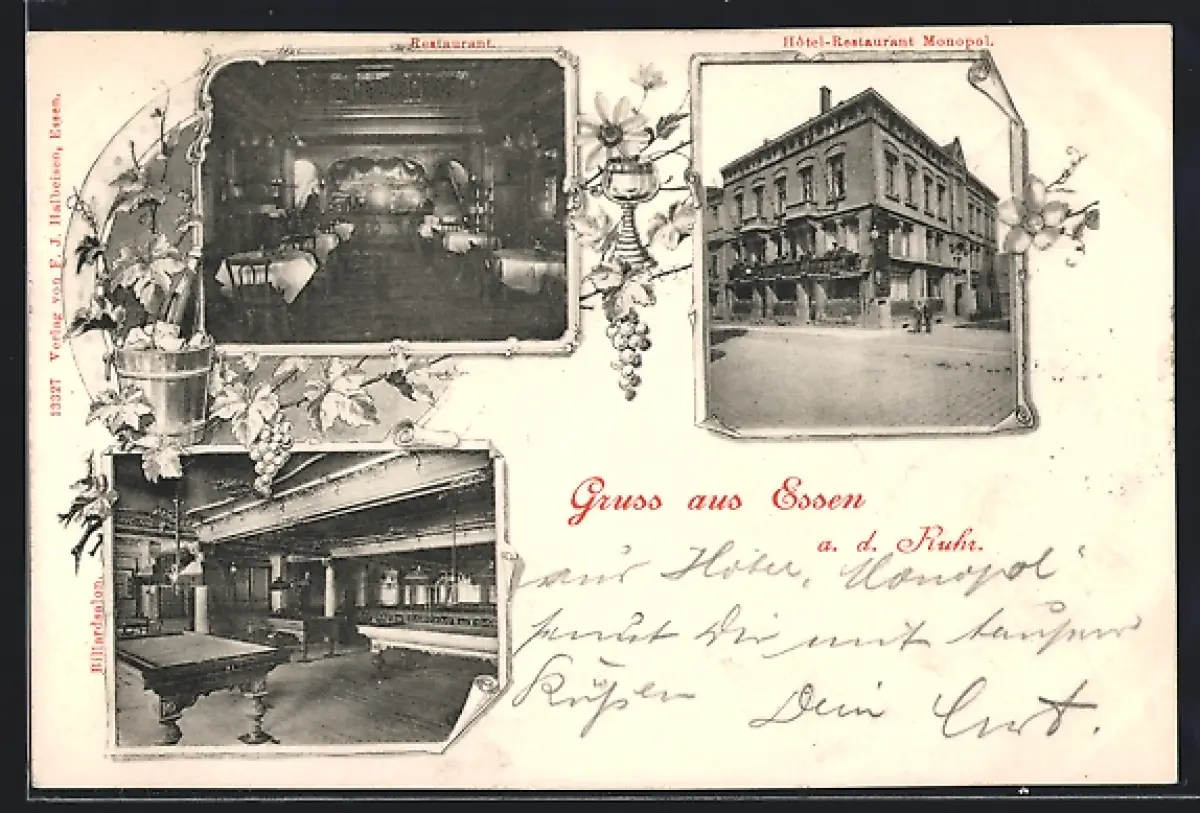 Restaurant.
Hôtel-Restaurant Monopol.
13327 Verlag von F. J. Halbeisen, Essen.
Billardsalon.
Gruss aus Essen
a. d. Ruhr.
aus Hôtel „Monopol“
Dir mit tausend
Küßen Dein Curt.